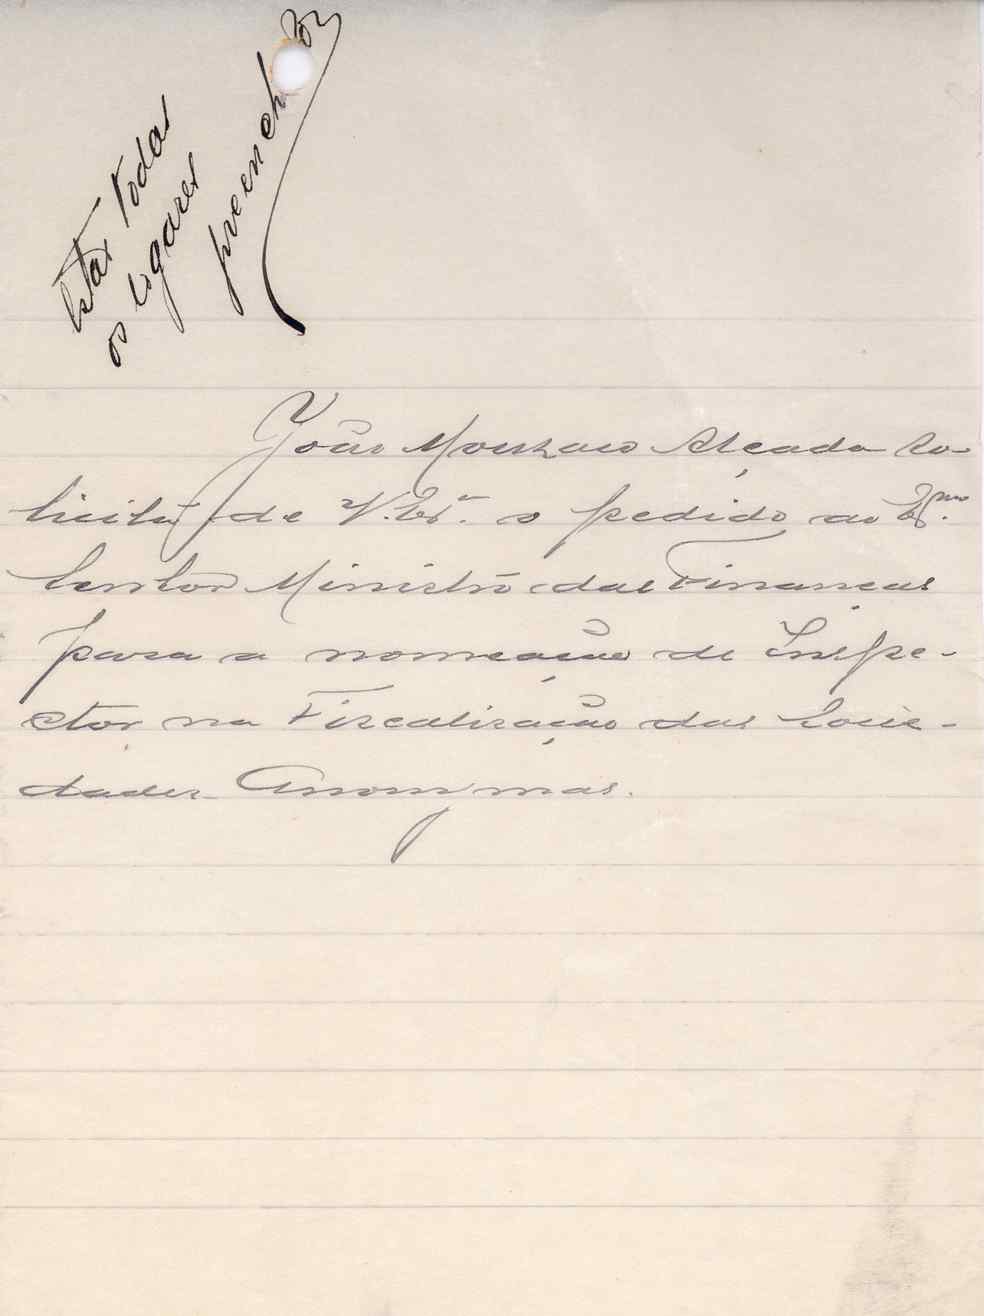 Estão todos
os logares
preenchidos
João Mouzaco Alçada so-
licita de V. Exª. o pedido ao Ex.mo
Senhor Ministro das Finanças
para a nomeação de Inspe-
ctor na Fiscalização das Socie-
dades Anonymas.